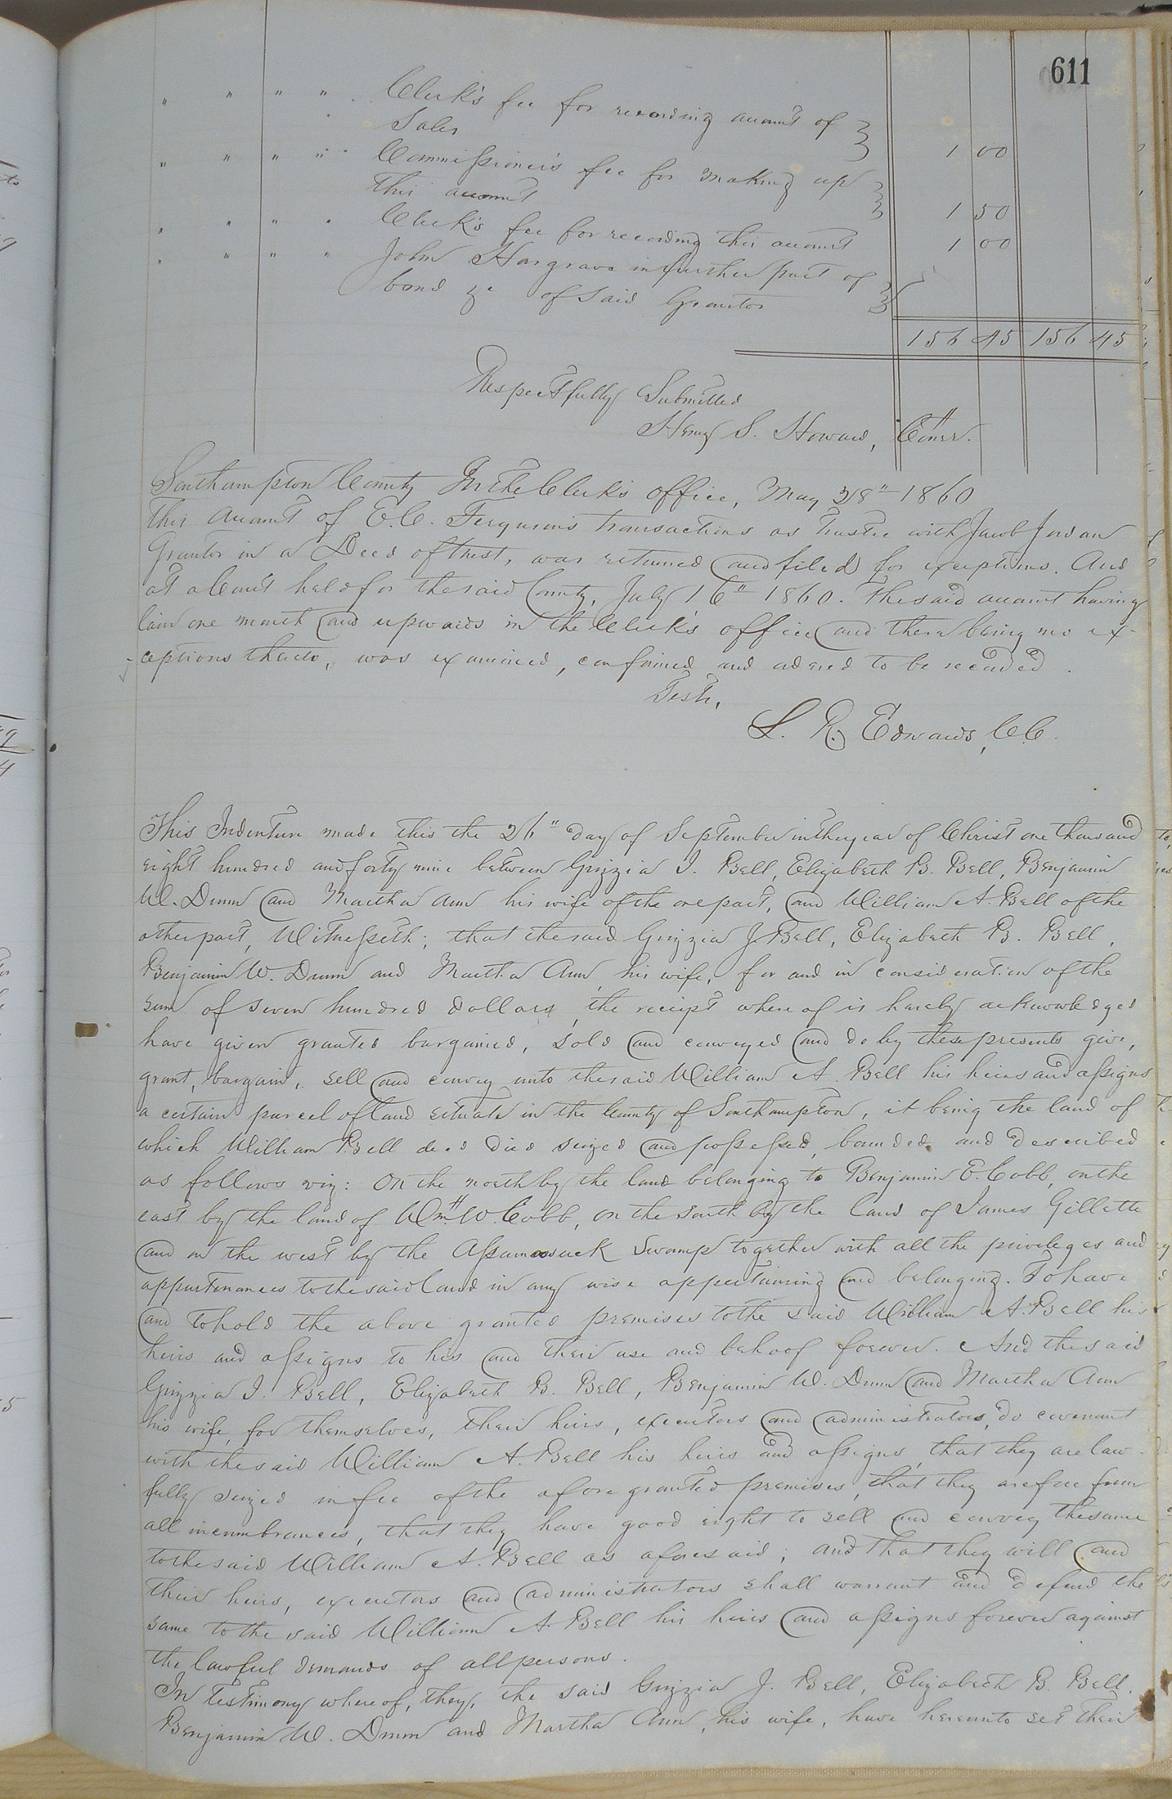 611
" " " " Clerk's fee for recording account of
Sales 1 00
" " " " Commissioner's fee for making up
this account 1 50
" " " " Clerk's fee for recording this account 1 00
" " " " John Hargrave in further part of
bond &c of said Grantor
156 45 156 45
Respectfully Submitted
Henry S. Howard, Comr.
Southampton County In the Clerk's office, May 28" 1860
This Account of E. C. Ferguson's transactions as Trustee with Jacob Jordan
Grantor in a Deed of trust, was returned and filed for exceptions. And
at a Court held for the said County, July 16" 1860. The said account having
lain one month and upwards in the Clerk's office and there being no ex-
ceptions thereto, was examined, confirmed and ordered to be recorded.
Teste,
L. R. Edwards, C.C.
This Indenture made this the 26" day of September in the year of Christ one thousand
eight hundred and forty nine between Grizzia J. Bell, Elizabeth B. Bell, Benjamin
W. Dunn and Martha Ann his wife of the one part, and William A. Bell of the
other part, Witnesseth; that the said Grizzia J. Bell, Elizabeth B. Bell,
Benjamin W. Dunn and Martha Ann, his wife, for and in consideration of the
sum of seven hundred dollars, the receipt whereof is hereby acknowledged
have given granted bargained, sold and conveyed and do by these presents give,
grant, bargain, sell and convey unto the said William A. Bell his heirs and assigns
a certain parcel of land situate in the County of Southampton, it being the land of
which William Bell decd died seized and possessed, bounded and described
as follows viz: On the north by the land belonging to Benjamin E. Cobb, on the
east by the land of Wm W. Cobb, on the South by the land of James Gillette
and on the west by the Assamoosuck Swamp together with all the privileges and
appurtenances to the said land in any wise appertaining and belonging. To have
and to hold the above granted premises to the said William A. Bell his
heirs and assigns to his and their use and behoof forever. And the said
Grizzia J. Bell, Elizabeth B. Bell, Benjamin W. Dunn and Martha Ann
his wife, for themselves, their heirs, executors and administrators, do covenant
with the said William A. Bell his heirs and assigns, that they are law-
fully seized in fee of the afore granted premises, that they are free from
all incumbrances, that they have good right to sell and convey the same
to the said William A. Bell as aforesaid; and that they will and
their heirs, executors and administrators shall warrant and defend the
same to the said William A. Bell his heirs and assigns forever against
the lawful demands of all persons.
In testimony whereof, they, the said Grizzia J. Bell, Elizabeth B. Bell,
Benjamin W. Dunn and Martha Ann, his wife, have hereunto set their